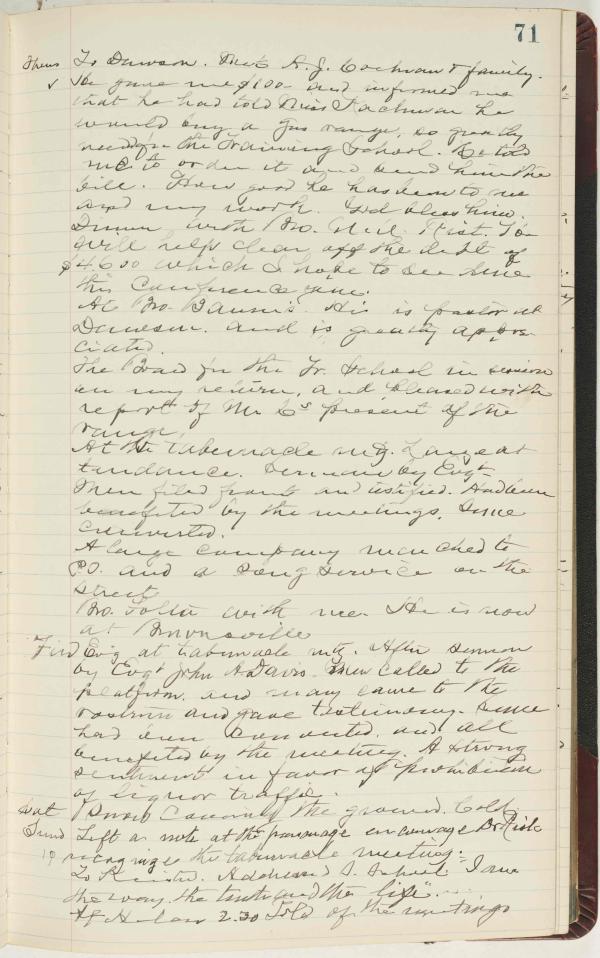 71
Thurs To Dawson. Met A. J. Cochran & family.
He gave me $100- and informed me
that he had told Miss he
would buy a gas range, so greatly
need for the Training School. He told
me to order it and send him the
bill. How good he has been to me
and my work. God bless him.
Dinner with Bro. Rist.
will help clear off the debt of
$4600 which I hope to see
this Conference year.
At Bro. He is pastor at
Dawson. and is greatly appre-
ciated.
The Board for the Tr. School in session
on my return, and pleased with
report of Mr C's present of the
range.
At the tabernacle mtg. Large at
tendance. Sermon by Evgt
Men filed front and testified. Had been
benefited by the meetings. Some
converted.
A large company marched to
P.O. and a song service on the
street
Bro. with me. He is now
at Brownsville
Frid Ev'g at tabernacle mtg. After sermon
by Evgt John A Davis. Men called to the
platform, and many came to the
rostrum and gave testimony. Some
had been converted, and all
benefited by the meeting. A strong
sentiment in favor of prohibition
of liquor traffic.
Sat Snow covering the ground. Cold.
Sund Left a note at the parsonage encourage Dr Rist
recognize the tabernacle meeting.
To Addressed S. School "I am
the way, the truth and the life".
At 2.30 Told of the meetings